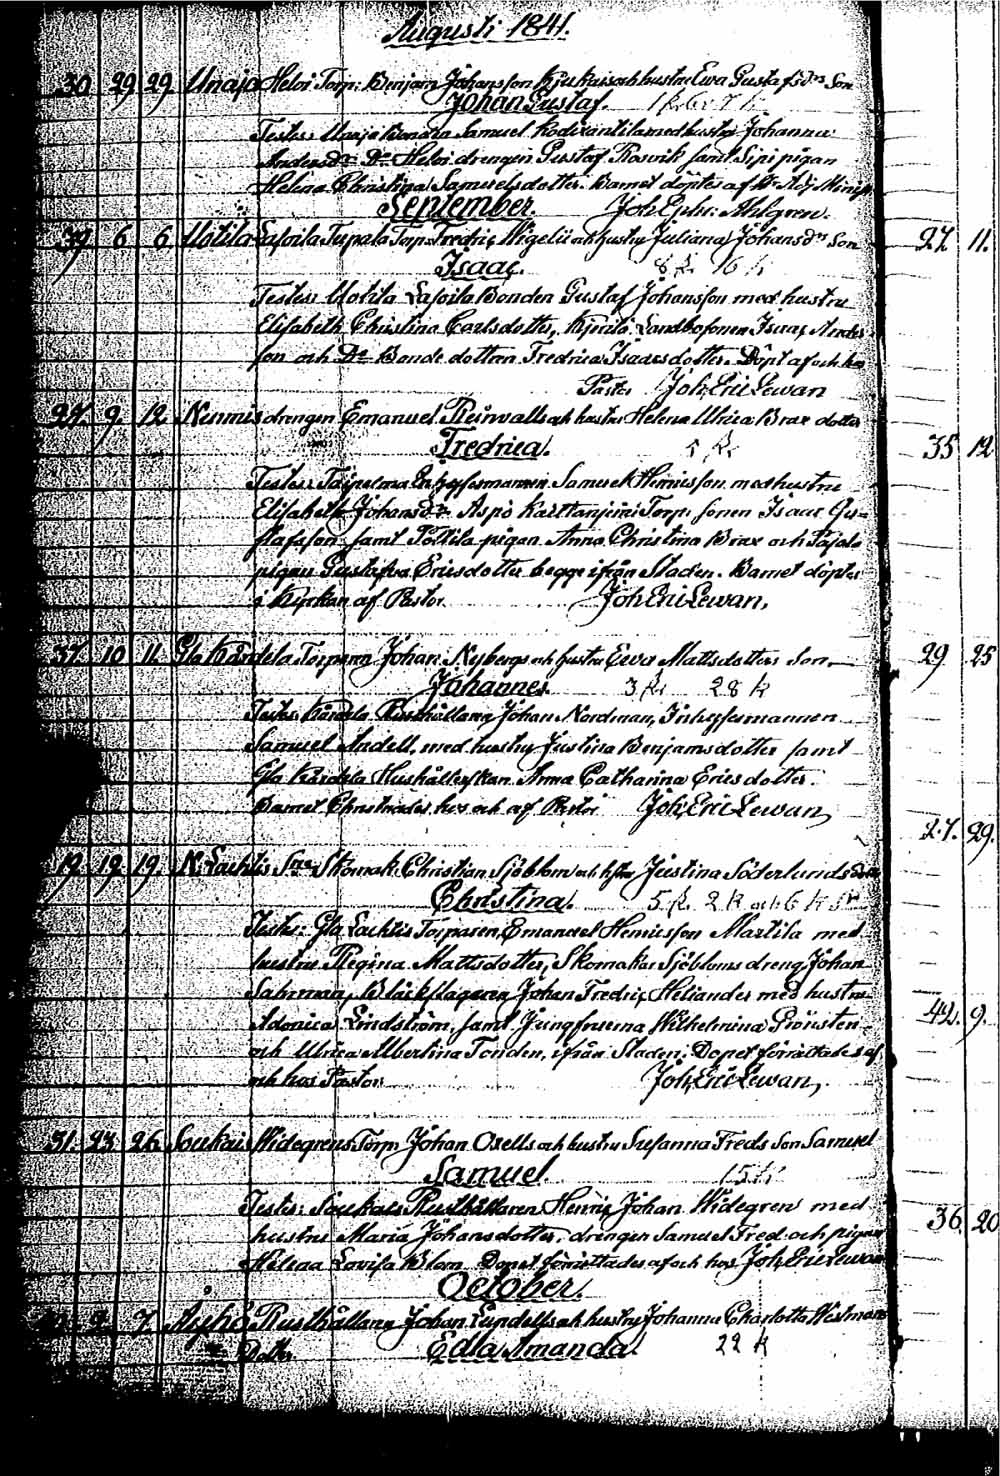 Augusti 1841.
30 29 29 Unaja Heloi Torp: Benjam Johansson och hustru Ewa Gustafsdrs Son
Johan Gustaf.
Testes: Unaja Bonden Samuel med hustru Johanna
Andersdr Do Heloi drengen Gustaf Rosvik samt Sipi pigan
Helena Christina Samuelsdotter. Barnet döptes af
September. Joh Ephr: Ahlgren.
39 6 6 Uotila Lasoila Tupala Torp. Fredric Wigelii och hustru Juliana Johansdrs Son
Isaac. 8 k. 16 k
Testes: Uotila Lasoila Bonden Gustaf Johansson med hustru
Elisabeth Christina Carlsdotter, Landbosonen Isaac Anders
son och Do Bonde dottren Fredrica Isaacsdotter. Döpt af och hos
Pastor Joh, Eric Lewan
27. 9. 12 Nurmis drengen Emanuel Reinvalls och hustru Helena Ulrica Brax dotter
Fredrica.
Testes: Inhysesmannen Samuel Henricsson med hustru
Elisabeth Johansdr Aspo Torp: sonen Isaac Gu=
stafsson samt Tottila pigan Anna Christina Brax och
pigan Gustafva Ericsdotter begge ifrån Staden. Barnet döptes
i Kyrkan af Pastor Joh Eric Lewan,
37. 10 11. Gla Kårdela Torparen Johan Nybergs och hustru Ewa Mattsdotters Son
Johannes. 3 k. 28 k
Testes: Kårdela Rusthållaren Johan Nordman, Inhysesmannen
Samuel Andell, med hustru Justina Benjamsdotter samt
Gla Kårdela Hushållerskan Anna Catharina Ericsdotter.
Barnet Christnades hos och af Pastor Joh, Eric Lewan,
19. 12 19. N. Lachtis Skomak. Christian Sjöblom och hstru Justina Söderlunds
Christina. 5 k. 2 k och 6 k
Testes: Gla Lachtis Torparen Emanuel Henricsson Martila med
hustru Regina Mattsdotter, Skomakar Sjöbloms dreng Johan
Sahrman, Bläckslagaren Johan Fredric Heliander med hustru
Adonica Lindström, samt Jungfruerna Wilhelmina Grönsten
och Ulrica Albertina Tonden, ifrån Staden. Dopet förrättades af
och hos Pastor Joh, Eric Lewan,
31. 23. 26. Soukai Widegrens Torp Johan Oxells och hustru Susanna Freds Son Samuel
Samuel. 15 k
Testes: Soukais Rusthållaren Henric Johan Widegren med
hustru Maria Johansdotter, drengen Samuel Fred och pigan
Helena Lovisa Blom. Dopet förrättades af och hos Joh, Eric Lewan
October.
2. 7. Rusthållaren Johan Lundells och hustru Johanna Charlotta Westmans
Dotter Edla Amanda. 22 k
27. 11.
35 12
29 25
27. 29.
42 9.
36 20